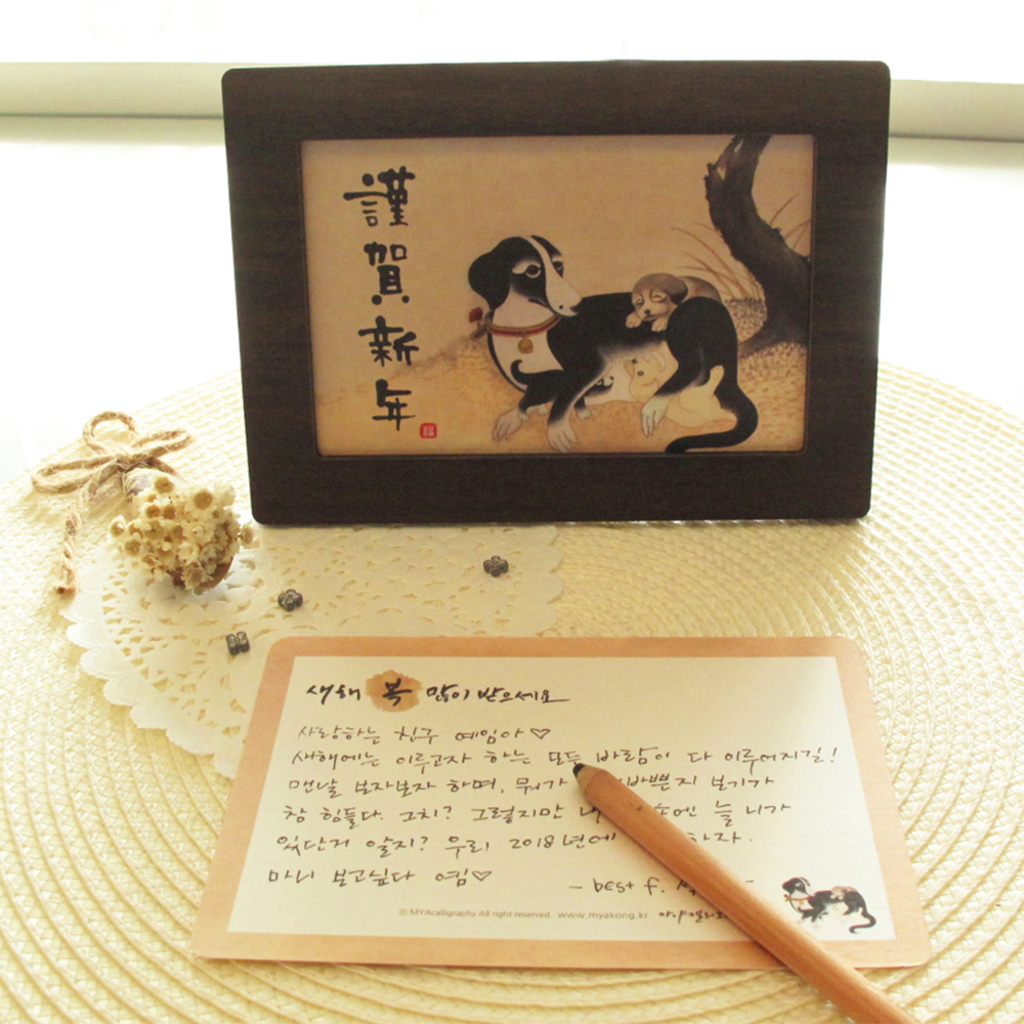 謹賀新年
福
새해 복 많이 받으세요
사랑하는 친구 예임아♡
새해에는 이루고자 하는 모든 바람이 다 이루어지길!
맨날 보자보자 하며, 뭐가 바쁜지 보기가
참 힘들다. 그치? 그렇지만 내 늘 니가
있단거 알지? 우리 2018년에 하자.
마니 보고싶다 예임♡
- best f.
ⓒ MYAcalligraphy All right reserved www.myakong.kr